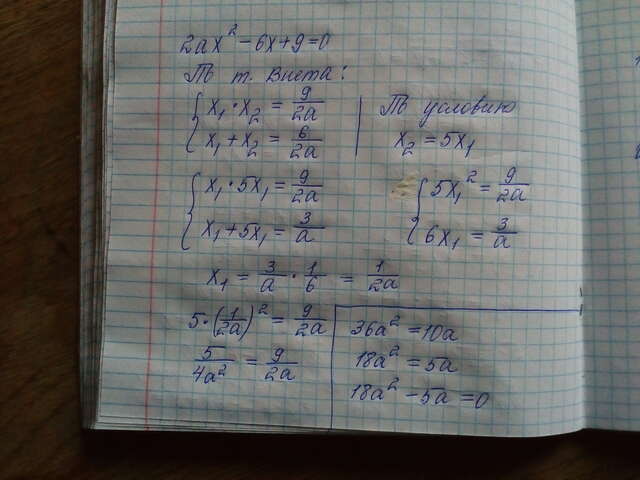 2ax² - 6x + 9 = 0
По т. Виета:
x₁ · x₂ = 9/2a
x₁ + x₂ = 6/2a
По условию
x₂ = 5x₁
x₁ · 5x₁ = 9/2a
x₁ + 5x₁ = 3/a
5x₁² = 9/2a
6x₁ = 3/a
x₁ = 3/a · 1/6 = 1/2a
5 · (1/2a)² = 9/2a
5/4a² = 9/2a
36a² = 10a
18a² = 5a
18a² - 5a = 0